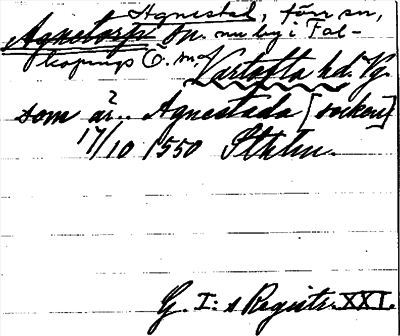 Agnestad, förr sn,
Agnetorps sn. nu by i Fal-
köpings Ö. m. of
Vartofta hd. Vg.
som är.. Agnestada [socken]
17/10 1550 Sthlm.
G. I:s Registr. XXI.